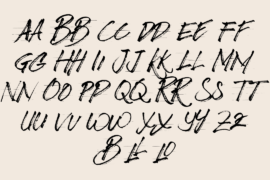 AA BB CC DD EE FF
GG HH II JJ KK LL MM
NN OO PP QQ RR SS TT
UU VV WW XX YY ZZ
B LL LO